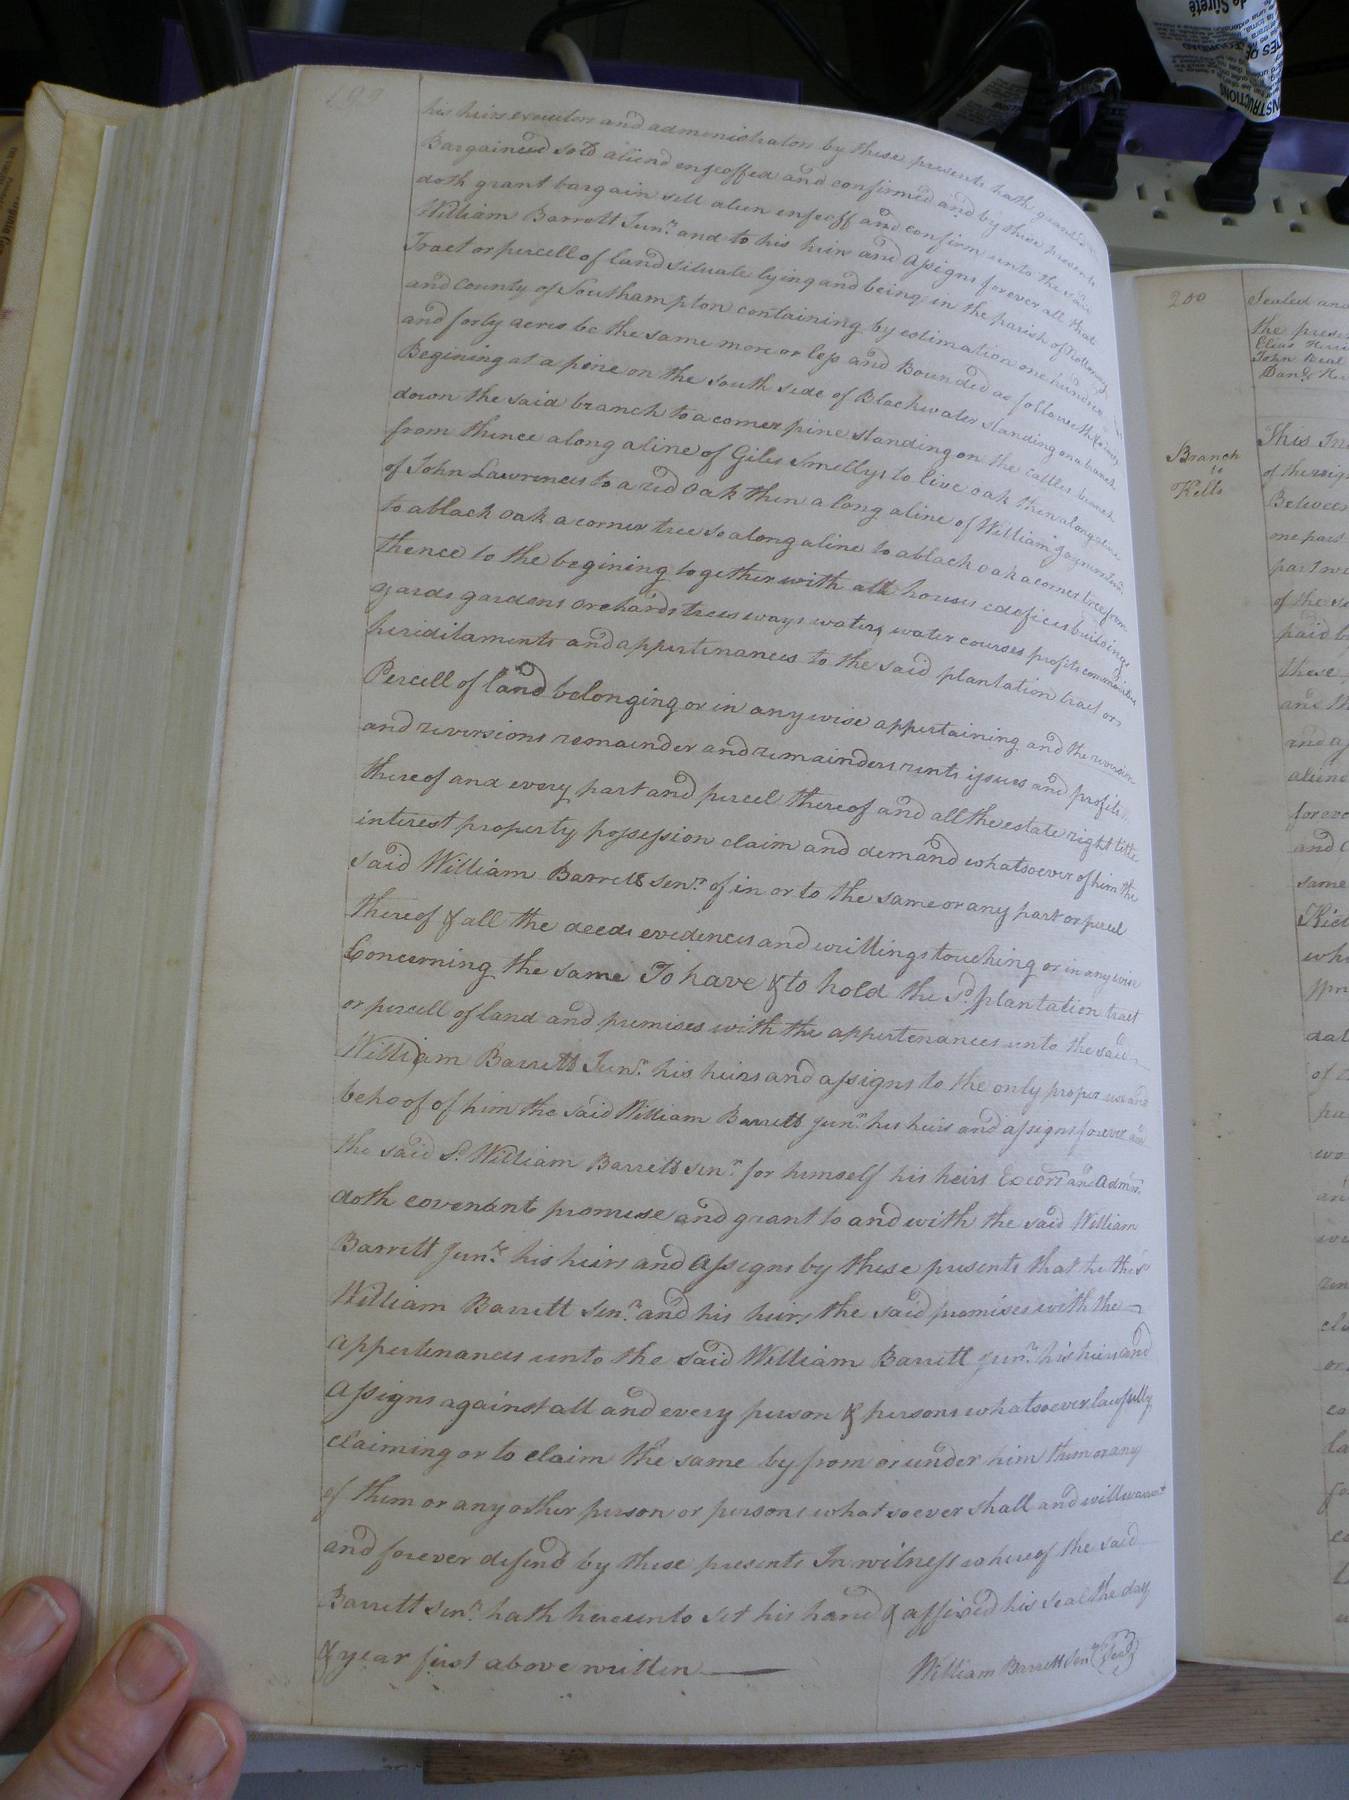 his heirs executors and administrators by these presents hath granted
Bargained sold aliend enfeoffed and confirmed and by these presents
doth grant bargain sell alien enfeoff and confirm unto the said
William Barrott Junr. and to his heirs and Assigns forever all that
Tract or percell of land situate lying and being in the parish of Nottoway
and County of Southampton containing by estimation one hundred
and forty acres be the same more or less and Bounded as followeth
Begining at a pine on the south side of Blackwater standing on a branch
down the said branch to a corner pine standing on the Cattles branch
from thence along a line of Giles Smellys to live oak then along a line
of John Lawrences to a red oak then a long a line of William
to a black oak a corner tree so along a line to a black oak a corner tree from
thence to the begining together with all houses edefices buildings
yards gardens orchards trees ways waters water courses profits commodities
hereditaments and appertenances to the said plantation tract or
Percell of land belonging or in any wise appertaining and the reversion
and reversions remainder and remainders rents issues and profits
thereof and every part and percel thereof and all the estate right title
interest property possession claim and demand whatsoever of him the
said William Barrett senr. of in or to the same or any part or percel
thereof & all the deeds evidences and writtings touching or in any wise
Concerning the same To have & to hold the sd. plantation tract
or percell of land and premises with the appertenances unto the said
William Barrett Junr. his heirs and assigns to the only proper use and
behoof of him the said William Barrett junr. his heirs and assigns forever and
the said Sd. William Barrett senr. for himself his heirs Exeors and Admrs.
doth covenant promise and grant to and with the said William
Barrett junr. his heirs and assigns by these presents that he the sd
William Barrett senr. and his heirs the said premises with the
appertenances unto the said William Barrett junr. his heirs and
Assigns against all and every person & persons whatsoever lawfully
claiming or to claim the same by from or under him them or any
of them or any other person or persons whatsoever shall and will warrant
and forever defend by these presents In witness whereof the said
Barrett senr. hath hereunto set his hand & affixed his seal the day
& year first above written
William Barrett Senr (Seal)
200
Sealed and
the prese
John Neal
Branch
to
Kello
This In
of the
Betwee
one part
part
of the
paid b
these
and th
and a
aliene
forever
and C
same